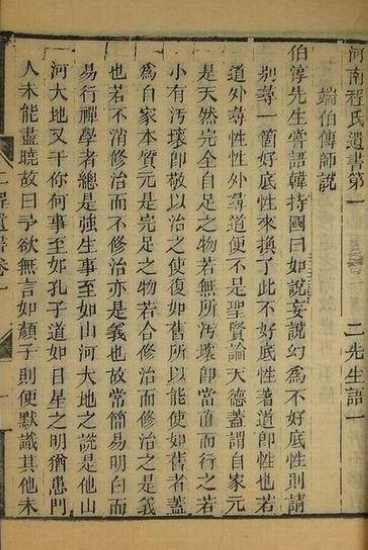 河南程氏遺書第一　二先生語一
端伯傳師說
伯淳先生嘗語韓持國曰如說妄說幻為不好底性則請
别尋一箇好底性來換了此不好底性著道即性也若
道外尋性性外尋道便不是聖賢論天德蓋謂自家元
是天然完全自足之物若無所汚壞即當直而行之若
小有汚壞即敬以治之使復如舊所以能使如舊者蓋
為自家本質元是完足之物若合修治而修治之是義
也若不消修治而不修治亦是義也故常簡易明白而
易行禪學者總是強生事至如山河大地之說是他山
河大地又干你何事至如孔子道如日星之明猶患門
人未能盡曉故曰予欲無言如顏子則便默識其他未